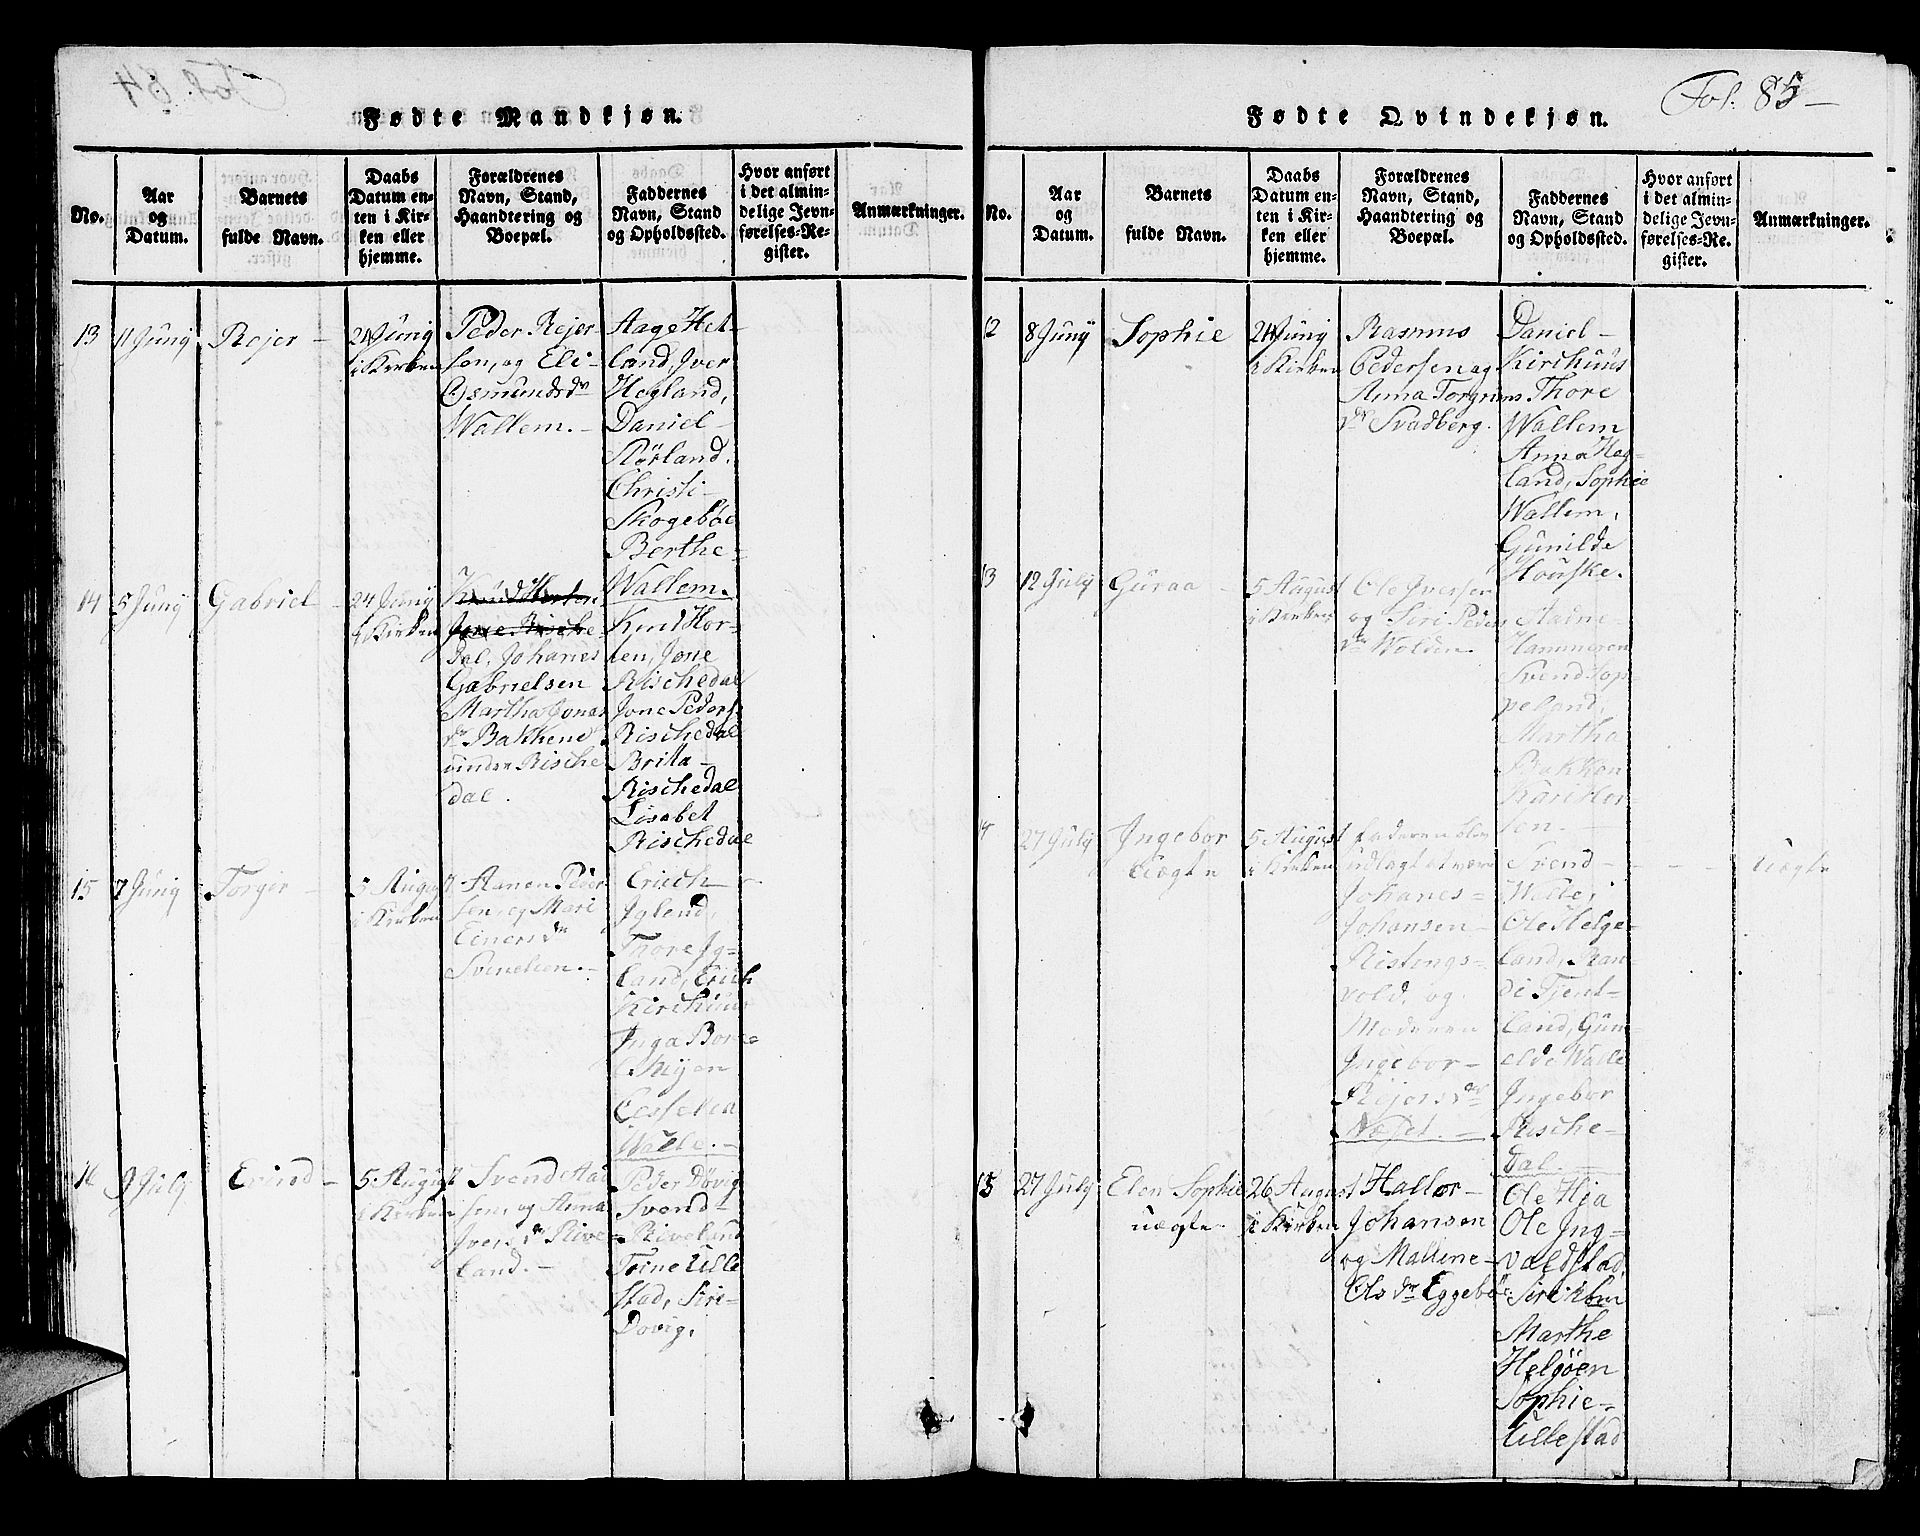 Fol. 84
Fødte Mandkjøn.
No.
Aar
og
Datum.
Barnets
fulde Navn.
Daabs
Datum en-
ten i Kir-
ken eller
hjemme.
Forældrenes
Navn, Stand,
Haandtering og
Boepæl.
Faddernes
Navn, Stand
og Opholdssted.
Hvor anført
i det almin-
delige Jevn-
førelses-Re-
gister.
Anmærkninger.
13
11 Junij
Rejer
24 Junij
i Kirken
Peder Rejer-
sen, og Eli
Osmundsdr
Wallem.
Aage Het-
land, Iver
Hogland,
Daniel
Størland.
Christi
Skogebøe
Berthe
Wallem.
14
5 Junij
Gabriel
24 Junij
i Kirken
dal, Johanes
Gabrielsen
Martha Jonas
dr Bakkene
under Rische
dal.
Knut Hor-
ten, Jone
Rischedal
Jone Peders
Rischedal
Britta
Rischedal
Lisabet
Rischedal
15
7 Junij
Torger
5 August
i Kirken
Aanen Peder
sen, og Mari
Einersdr
Svenelien.
Erich
Iglend,
Thore Ig-
land, Erich
Kirchuus
Inga Bore
Watle.
16
9 Julij
5 August
i Kirken
Svend Aa
sen, og Anna
Ivers dr Rive
land.
Peder Døvig
Svend
Riveland
Torne Lille
stad, Siri
Dovig.
Fol. 85
Fødte Qvindekjøn.
No.
Aar
og
Datum.
Barnets
fulde Navn.
Daabs
Datum en-
ten i Kir-
ken eller
hjemme.
Forældrenes
Navn, Stand,
Haandtering og
Boepæl.
Faddernes
Navn, Stand
og Opholdssted.
Hvor anført
i det almin-
delige Jevn-
førelses-Re-
gister.
Anmærkninger.
12
8 Junij
Sophie
24 Junij
i Kirken
Rasmus
Pedersen og
Anna Torgrims
dr Svadberg.
Daniel
Kirchuus
Thore
Wallem
Anna Hog-
land, Sophie
Wallem,
Gunilde
Houske.
13
12 Julij
Guraa
5 August
i Kirken
Ole Iversen
og Siri Peders
dr Wolden
Hammeren
Svend Sop-
peland,
Martha
Bakken
Kari Hor-
ten.
14
27 Julij
Ingebor
uægte
5 August
i Kirken
Faderen blev
udlagt at være
Johanes
Johansen
Ristings-
vold, og
Moderen
Ingebor
Rejersdr
Næset.
Svend
Watle,
Ole Helge-
land, Ran-
di Tjent-
land, Gun-
elde Watle
Ingebor
Rische-
dal.
uægte
15
27 Julij
Elen Sophie
uægte
26 August
i Kirken
Hallor
Johansen
og Mallene
Ols dr Eggebøe
Ole Hja
Ole Ing-
valdstad,
Siri
Marthe
Helgøen
Sophie
Lillestad